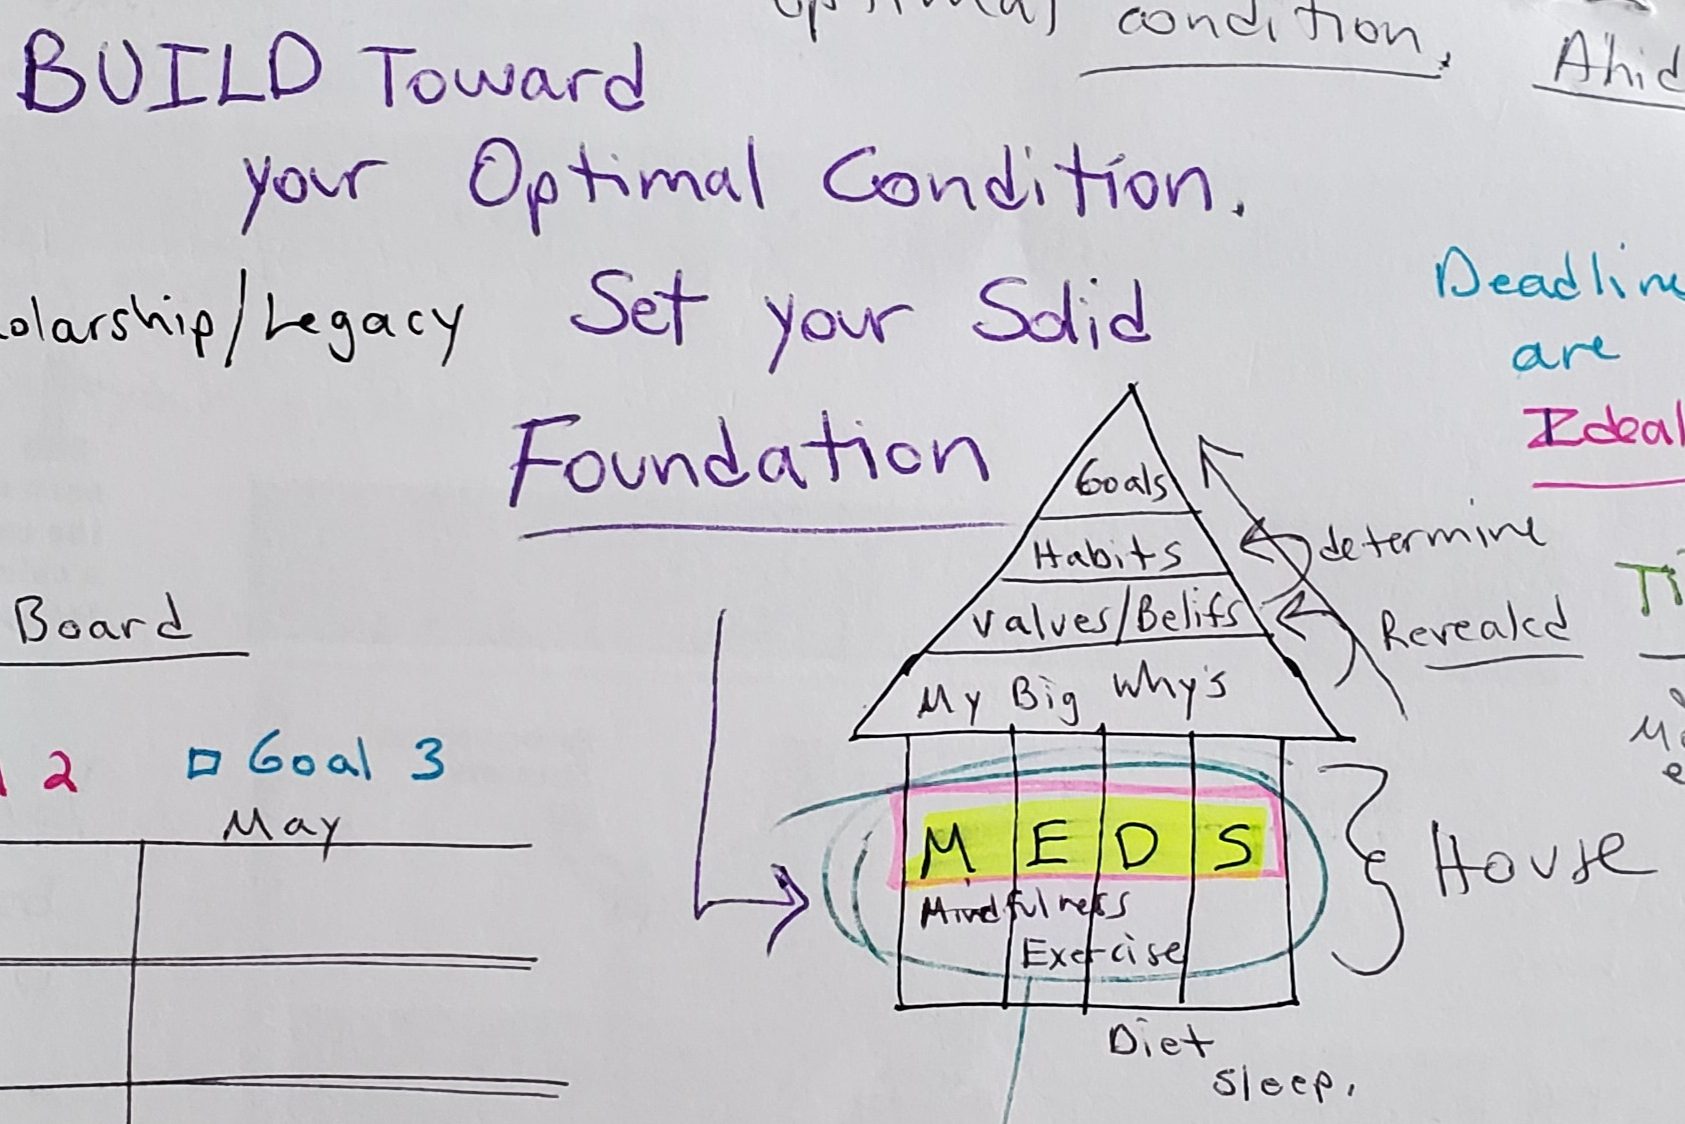 optimal condition.
BUILD Toward
your Optimal Condition.
/Legacy
Set your Solid
Foundation
are
Goals
Habits
determine
Values/Belifs
Revealed
My Big Why's
Board
2
Goal 3
May
M E D S
Mindfulness
Exercise
House
Diet
sleep.